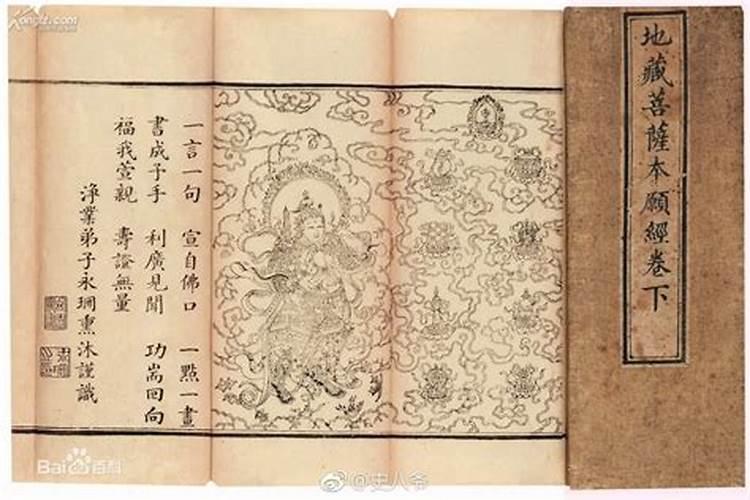 地藏菩薩本願經卷下
一言一句 宣自佛口 一點一畫
書成予手 利廣見聞 功耑回向
福我萱親 壽證無量
淨業弟子永薰沐謹識
Kongfz.com
Bai百科
@史人爷